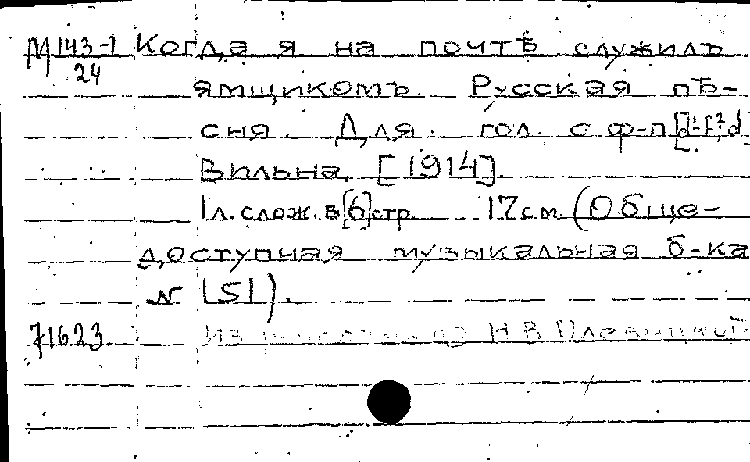 М 143-1 Когда я на почтѣ служилъ
24
ямщикомъ. Русская пѣ-
сня. Для гол. с ф-п [d¹-f²,d]
Вильна, [1914].
1 л. слож. в [6] стр. 17 см. (Обще-
доступная музыкальная б-ка
N 151).
71623 Из Н.В. Плевицкой